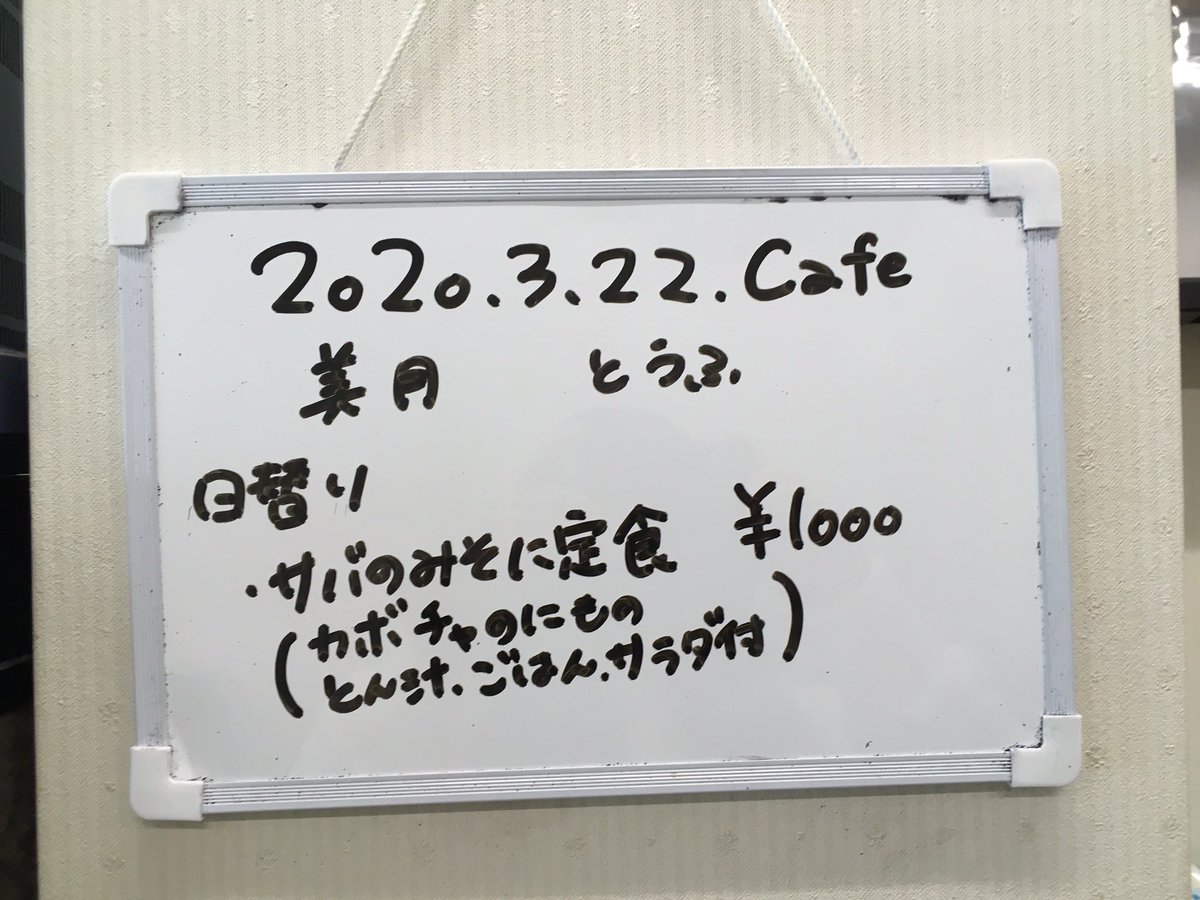 2020.3.22.Cafe
美月 とうふ
日替り
・サバのみそに定食 ¥1000
(カボチャのにもの
とん汁、ごはん、サラダ付)